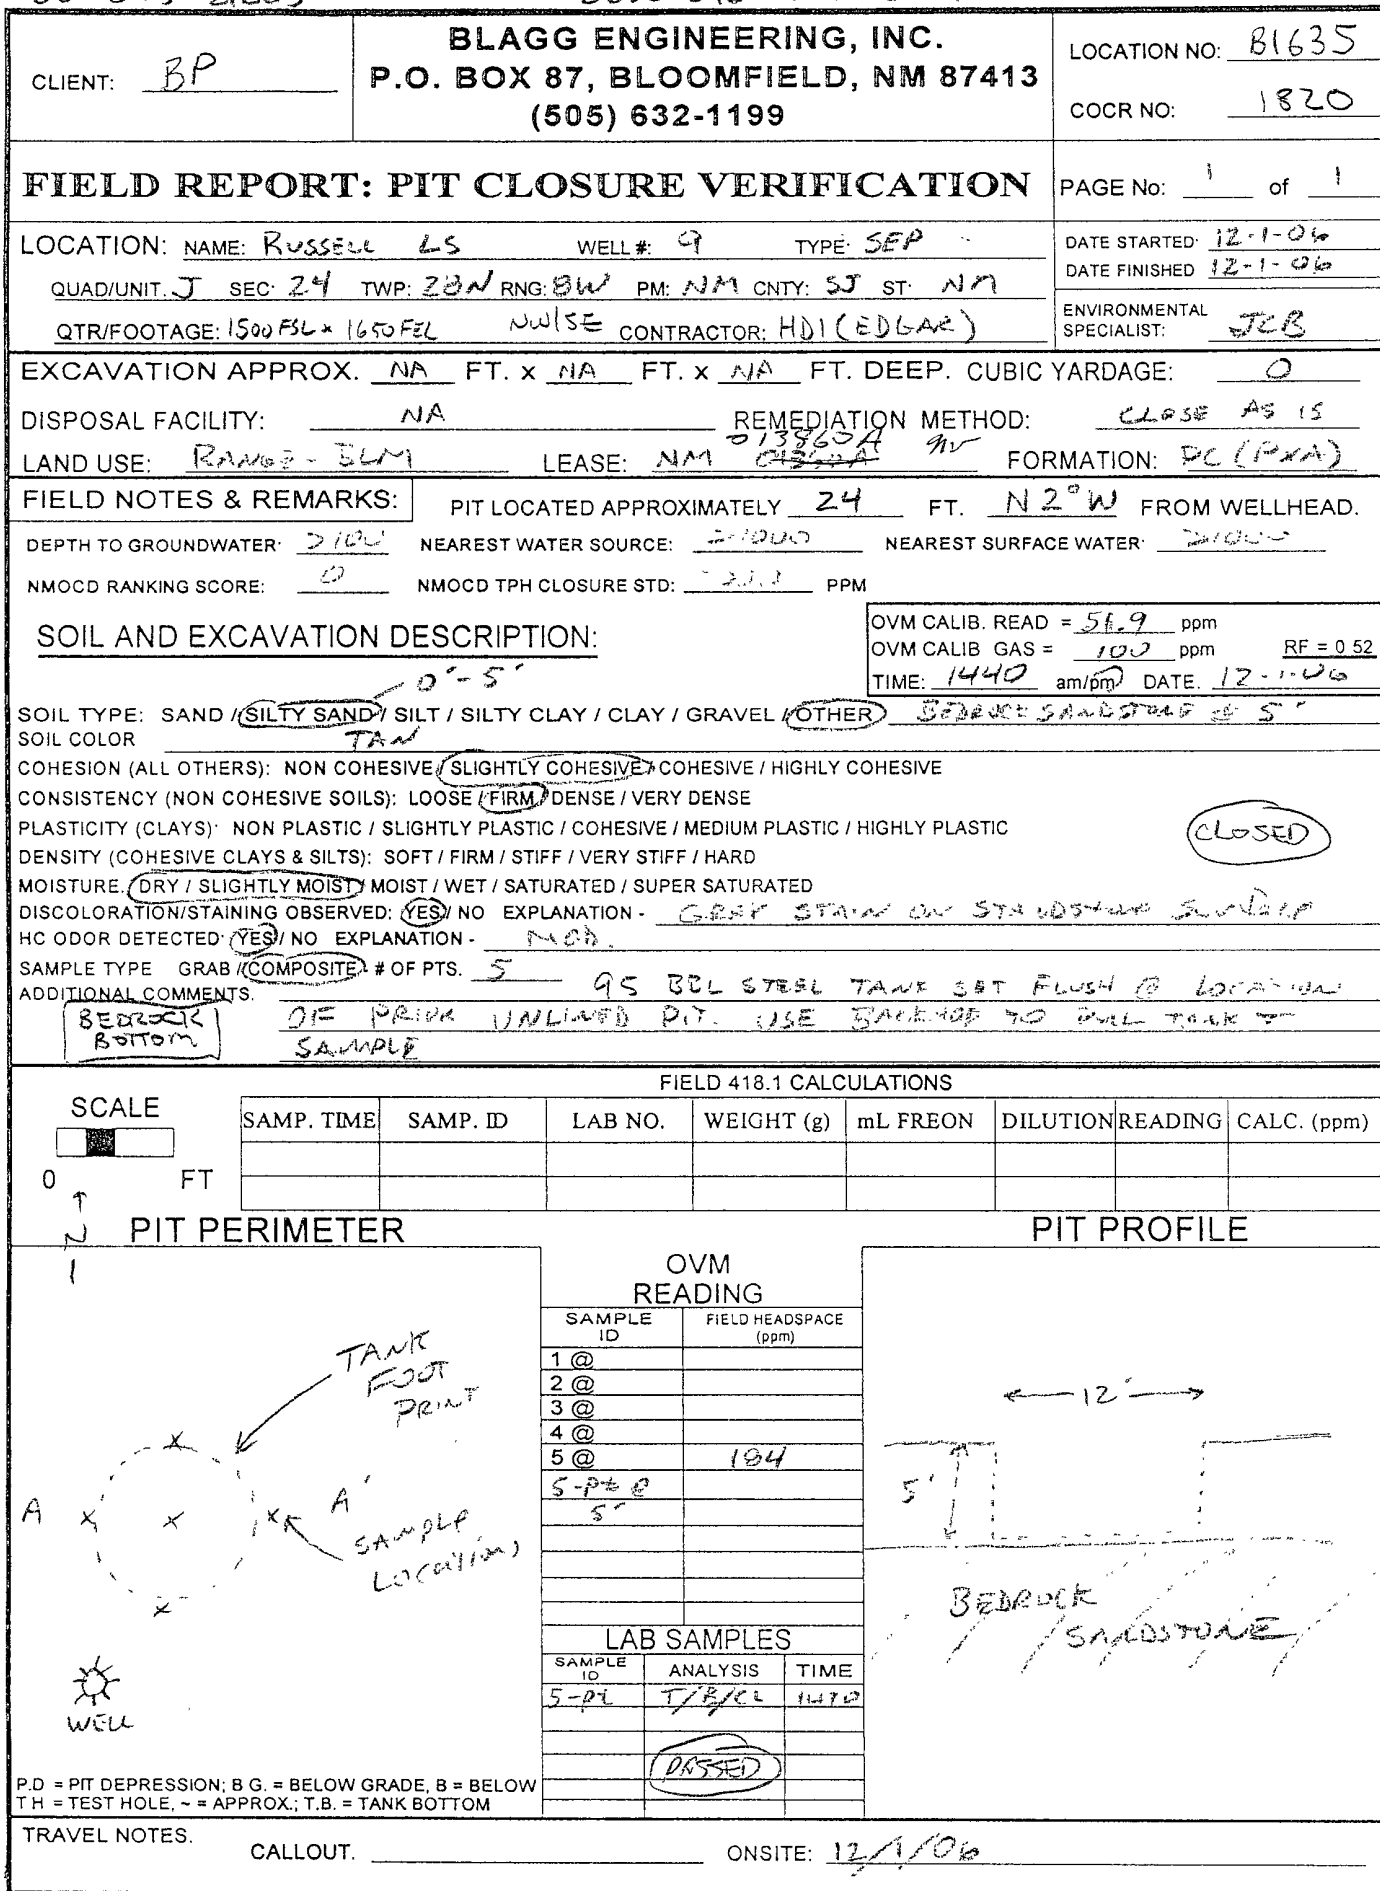 BLAGG ENGINEERING, INC.
P.O. BOX 87, BLOOMFIELD, NM 87413
(505) 632-1199
CLIENT: BP
LOCATION NO: B1635
COCR NO: 1820
FIELD REPORT: PIT CLOSURE VERIFICATION
PAGE No: 1 of 1
LOCATION: NAME: RUSSELL LS WELL #: 9 TYPE: SEP
QUAD/UNIT. J SEC: 24 TWP: 28N RNG: 8W PM: NM CNTY: SJ ST: NM
QTR/FOOTAGE: 1500 FSL x 1650 FEL NW/SE CONTRACTOR: HDI (EDGAR)
DATE STARTED: 12-1-06
DATE FINISHED 12-1-06
ENVIRONMENTAL
SPECIALIST: JCB
EXCAVATION APPROX. NA FT. x NA FT. x NA FT. DEEP. CUBIC YARDAGE: 0
DISPOSAL FACILITY: NA REMEDIATION METHOD: CLOSE AS IS
LAND USE: RANGE - BLM LEASE: NM 013860A FORMATION: PC (P&A)
FIELD NOTES & REMARKS: PIT LOCATED APPROXIMATELY 24 FT. N2°W FROM WELLHEAD.
DEPTH TO GROUNDWATER: >100 NEAREST WATER SOURCE: >1000 NEAREST SURFACE WATER: >1000
NMOCD RANKING SCORE: 0 NMOCD TPH CLOSURE STD: PPM
SOIL AND EXCAVATION DESCRIPTION:
OVM CALIB. READ = 51.9 ppm
OVM CALIB GAS = 100 ppm RF = 0 52
TIME: 1440 am/pm DATE. 12-1-06
0'-5'
SOIL TYPE: SAND / SILTY SAND / SILT / SILTY CLAY / CLAY / GRAVEL / OTHER BEDROCK SANDSTONE @ 5'
SOIL COLOR TAN
COHESION (ALL OTHERS): NON COHESIVE / SLIGHTLY COHESIVE / COHESIVE / HIGHLY COHESIVE
CONSISTENCY (NON COHESIVE SOILS): LOOSE / FIRM / DENSE / VERY DENSE
PLASTICITY (CLAYS): NON PLASTIC / SLIGHTLY PLASTIC / COHESIVE / MEDIUM PLASTIC / HIGHLY PLASTIC
CLOSED
DENSITY (COHESIVE CLAYS & SILTS): SOFT / FIRM / STIFF / VERY STIFF / HARD
MOISTURE. DRY / SLIGHTLY MOIST / MOIST / WET / SATURATED / SUPER SATURATED
DISCOLORATION/STAINING OBSERVED: YES / NO EXPLANATION - GRAY STAIN ON SANDSTONE SURFACE
HC ODOR DETECTED: YES / NO EXPLANATION - MOD.
SAMPLE TYPE GRAB / COMPOSITE - # OF PTS. 5
ADDITIONAL COMMENTS. 95 BBL STEEL TANK SET FLUSH @ LOCATION
BEDROCK BOTTOM OF PRIOR UNLINED PIT. USE BACKHOE TO PULL TANK &
SAMPLE
FIELD 418.1 CALCULATIONS
SCALE
0 FT
SAMP. TIME SAMP. ID LAB NO. WEIGHT (g) mL FREON DILUTION READING CALC. (ppm)
N
PIT PERIMETER
PIT PROFILE
OVM
READING
SAMPLE ID FIELD HEADSPACE (ppm)
1 @
2 @
3 @
4 @
5 @ 184
5-pt @
5'
TANK
FOOT
PRINT
A A'
SAMPLE
LOCATION)
WELL
12'
5'
BEDROCK
SANDSTONE
LAB SAMPLES
SAMPLE ID ANALYSIS TIME
5-pt T/B/CL 1410
PASSED
P.D = PIT DEPRESSION; B G. = BELOW GRADE, B = BELOW
T H = TEST HOLE, ~ = APPROX.; T.B. = TANK BOTTOM
TRAVEL NOTES.
CALLOUT. ONSITE: 12/1/06